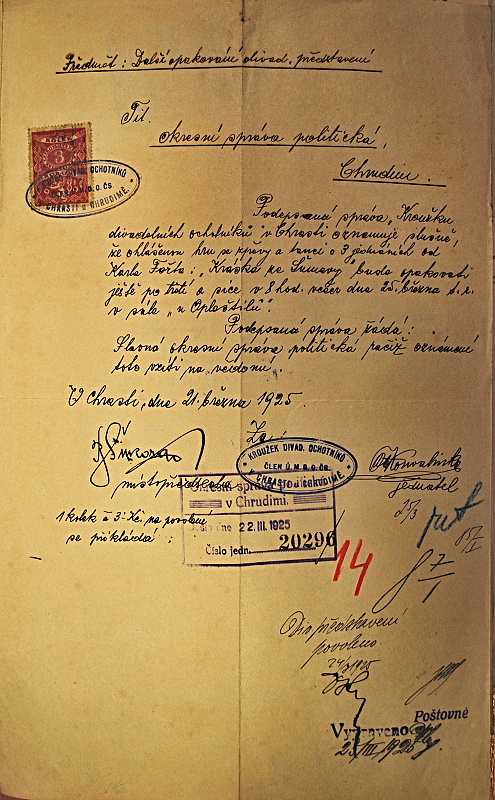 Předmět: Další opakování divad. představení
Tit.
okresní správa politická,
Chrudim.
KOLEK
3
KROUŽEK DIVAD. OCHOTNÍKŮ
ČLEN Ú.M.D.O.ČS.
V CHRASTI u CHRUDIMĚ.
Podepsaná správa „Kroužku
divadelních ochotníků“ v Chrasti oznamuje slušně,
že ohlášenou hru se zpěvy a tanci o 3 jednáních od
Karla Fořta: „Kráska ze Šumavy“ bude opakovati
ještě po třetí a sice v 8 hod. večer dne 25. března t. r.
v sále „u Oplaštilů“.
Podepsaná správa žádá:
Slavná okresní správa politická račiž oznámení
toto vzíti na vědomí.
V Chrasti, dne 21. března 1925.
Za:
KROUŽEK DIVAD. OCHOTNÍKŮ
ČLEN Ú.M.D.O.ČS.
V CHRASTI u CHRUDIMĚ.
místopředseda
jednatel
Okresní správa politická
v Chrudimi.
Došlo dne 22. III. 1925
Číslo jedn. 20296
1 kolek à 3 Kč na povolení
se přikládá
14
25/3
Div. představení
povoleno.
24/3 1925
Poštovné
Vypraveno
25/III 1925